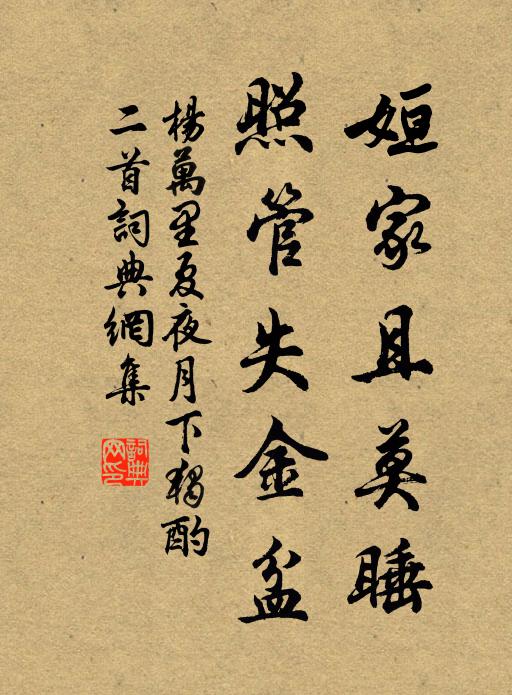 姮家且莫睡
照管失金盆
楊萬里夏夜月下獨酌
二首詞典網集
詞典
网印